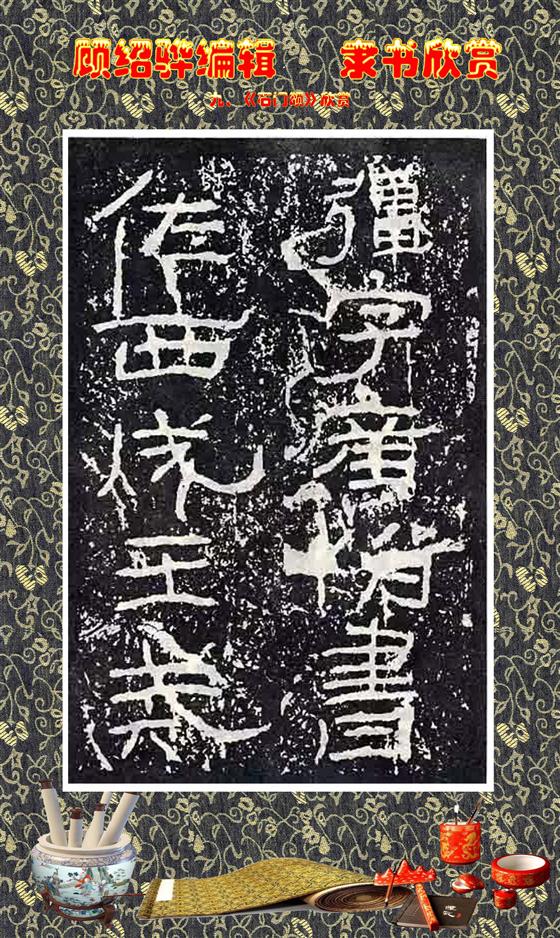 顾绍骅编辑 隶书欣赏
九、《石门颂》欣赏
彊字產伯書
佐西成王戒